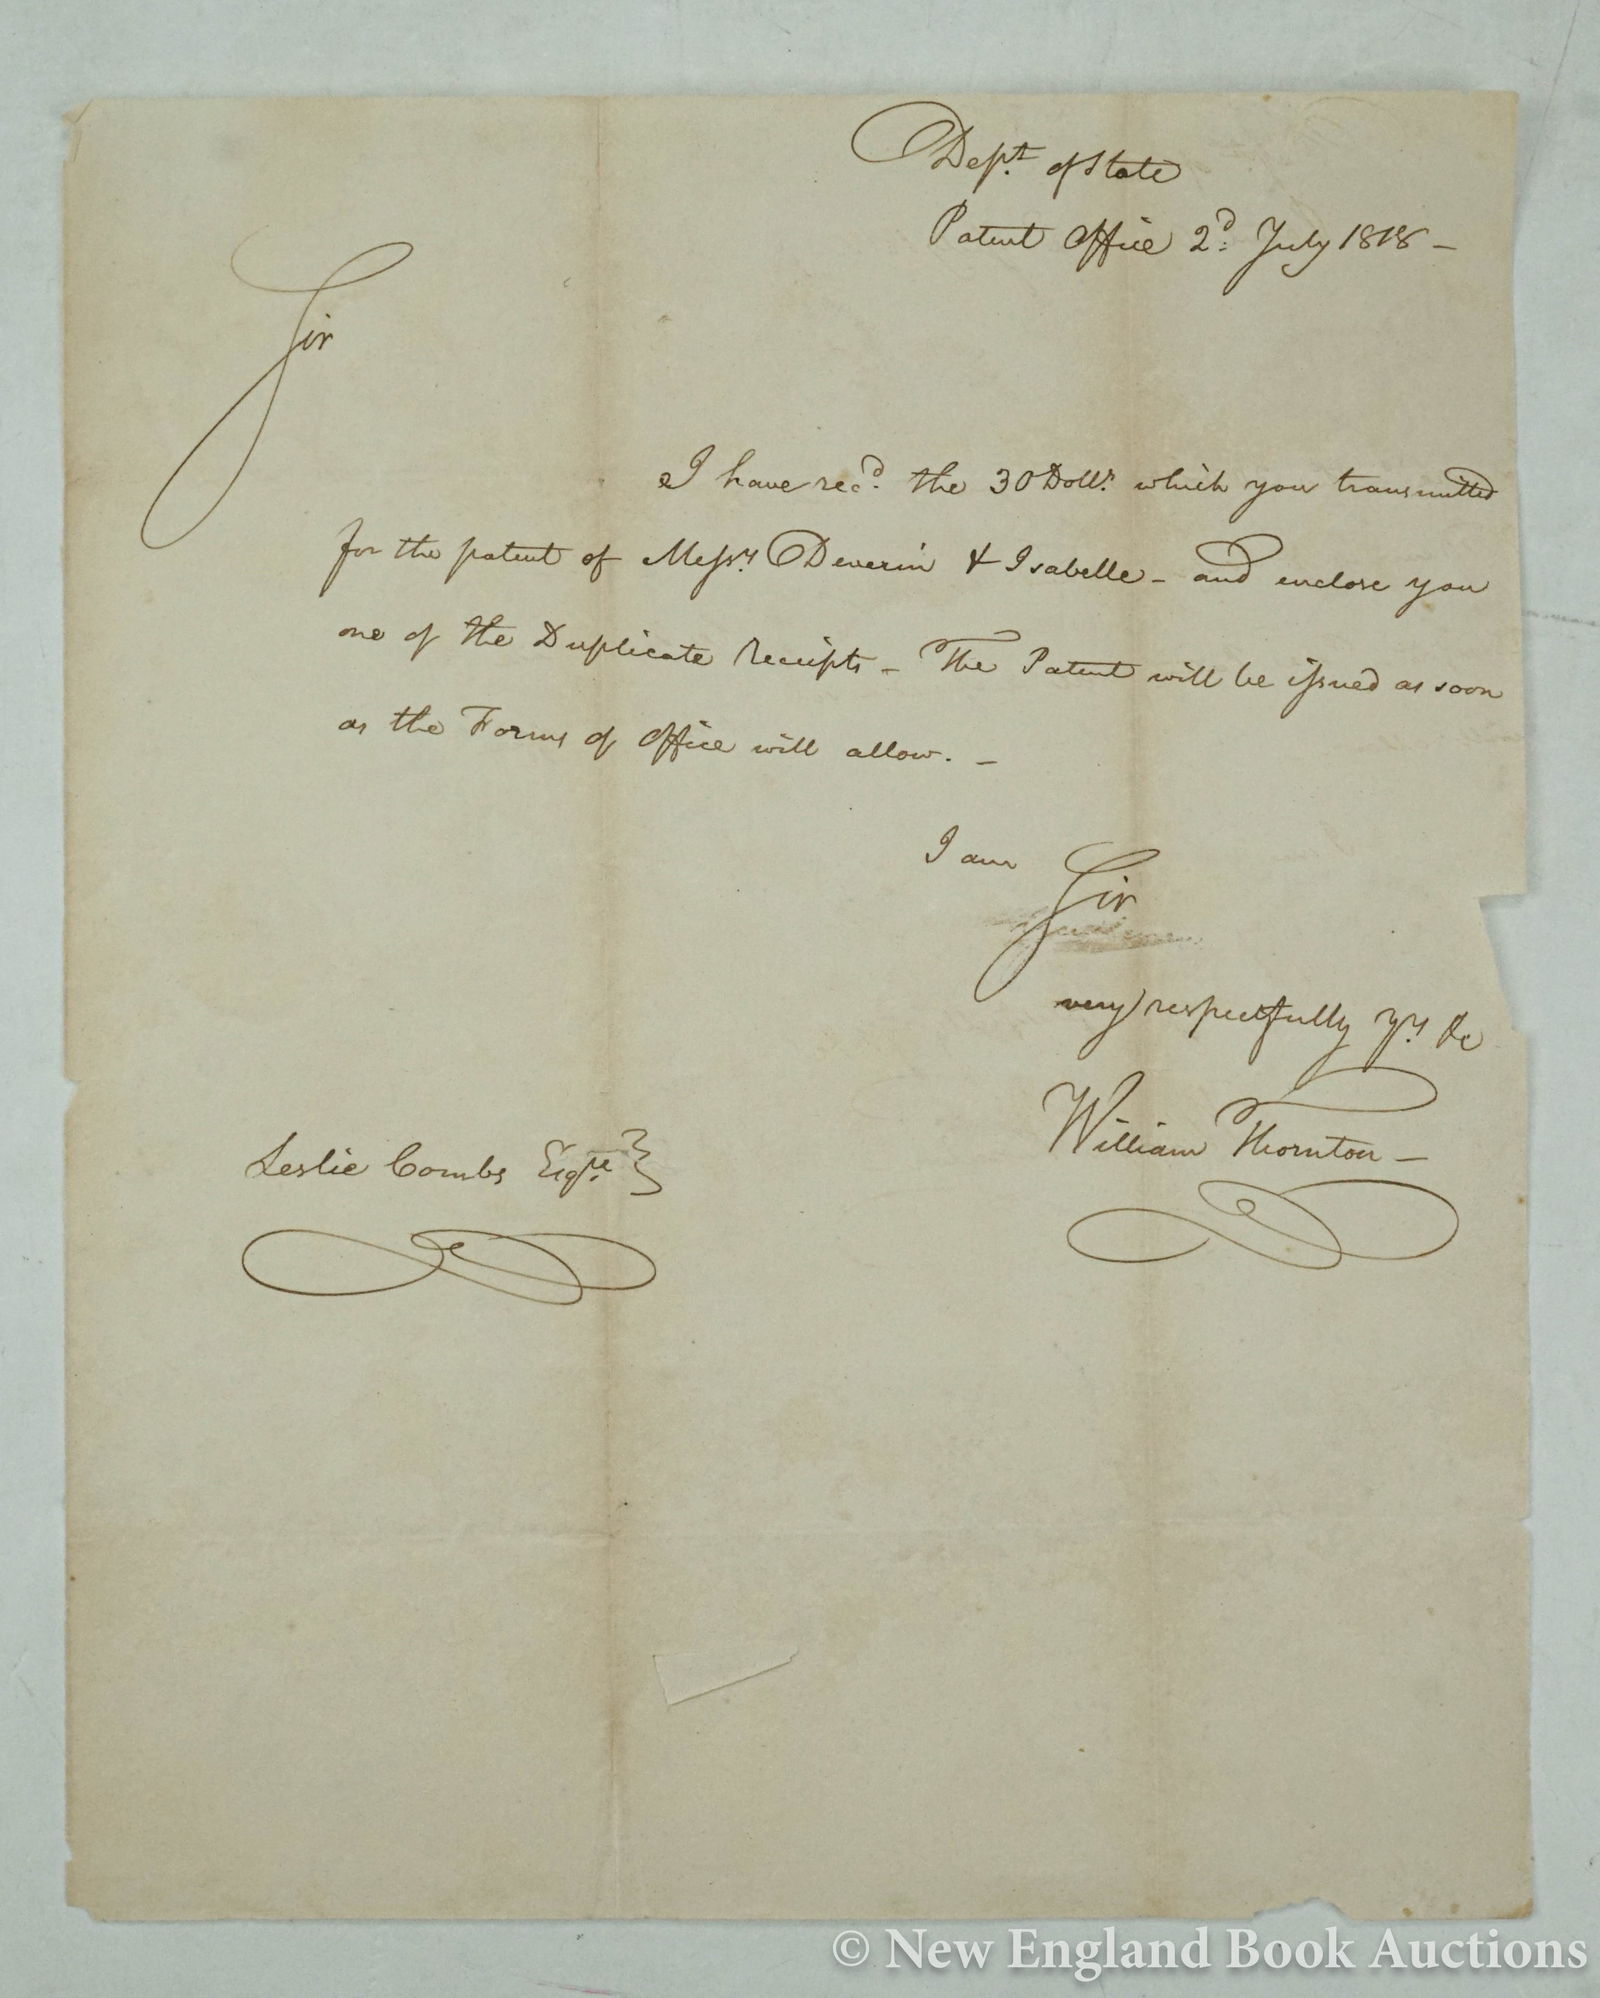 Dept. of State
Patent Office 2d: July 1818 –
Sir
I have recd. the 30 Dollrs. which you transmitted
for the patent of Messrs. Deverin & Isabelle – and enclose you
one of the Duplicate Receipts – The Patent will be issued as soon
as the Forms of Office will allow. –
I am
Sir
very respectfully yrs. &c
William Thornton –
Leslie Combs Esqre. }
© New England Book Auctions